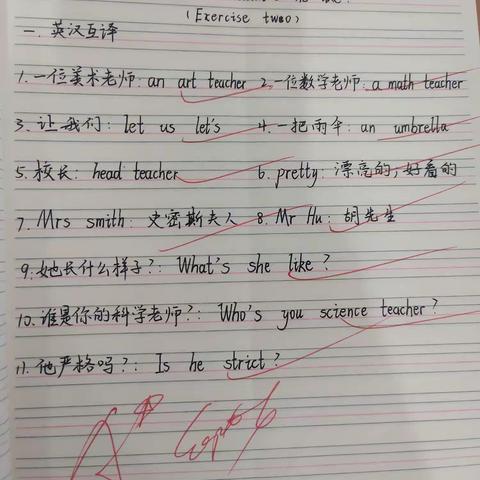 (Exercise two)
一. 英汉互译
1.一位美术老师: an art teacher 2.一位数学老师: a math teacher
3.让我们: let us let's 4.一把雨伞: an umbrella
5.校长: head teacher 6.pretty: 漂亮的,好看的
7.Mrs smith: 史密斯夫人 8.Mr Hu: 胡先生
9.她长什么样子?: What's she like?
10.谁是你的科学老师?: Who's you science teacher?
11.他严格吗?: Is he strict?